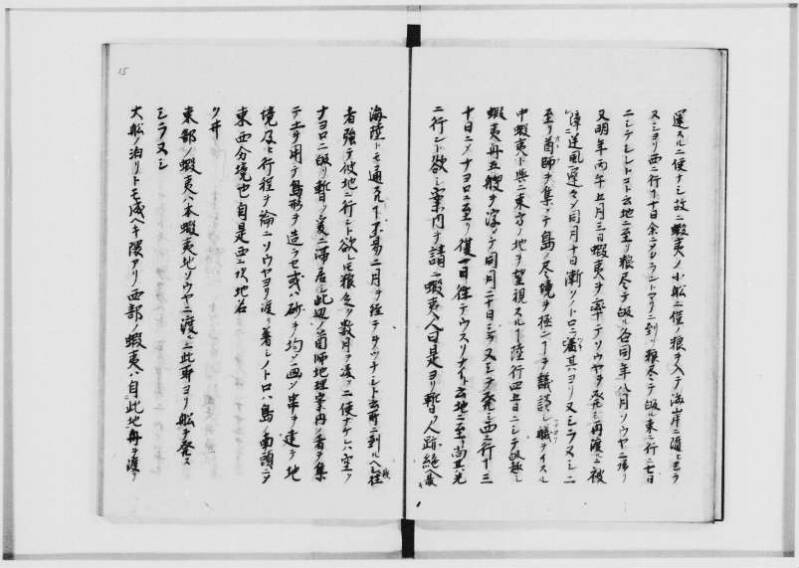 運スルニ使ナシ故ニ蝦夷ノ小船ニ僅ノ粮ヲ入テ海岸ニ
ヌシヨリ西ニ行コト十日余ニシテ 到リ粮尽テ皈ル東ニ行コト七日
ニシテシレトコト云地ニ至リ粮尽テ皈ル 同年八月ソウヤニ帰リ
又明年丙午五月三日蝦夷ヲ率テソウヤヲ発シ再渡ル 被
障逆風 同月十日漸ノトロニ 其ヨリ又シラヌシニ
至リ酋師ヲ集テ島ノ尽境ヲ極ンコトヲ議談シ
中蝦夷ト與ニ東方ノ地ヲ望視スルコト陸行四五日ニシテ皈
蝦夷舟五艘ヲ テ同月二十日シラヌシヲ発シ西ニ行コト十三
十日ニメナヨロニ至リ僅一日往テウスリナイト云地ニ至ル尚其先
ニ行ント欲シ案内ヲ請ニ蝦夷人曰是ヨリ暫ク人跡絶
15
海陸トモヲ通スルコト不易二月ヲ経テタウツナントト云所ニ到ルヘシ
者強テ彼地ニ行ント欲シ 粮乏ク数月ヲ凌クニ便ナケレハ空ク
ナヨロニ皈リ暫ク爰ニ滞居シ此辺ノ酋師地理案内ノ者ヲ集
テ土ヲ用テ島形ヲ造ラセ或ハ砂ヲ均シ画シ串ヲ建テ地
境及ヒ行程ヲ論ニソウヤヨリ渡リ着シノトロハ島ノ南頭ニテ
東西分境也自是西ノ方地名
ツ井
東部ノ蝦夷ハ本蝦夷地ソウヤニ渡ルニ此所ヨリ船ヲ発ス
シラヌシ
大船ノ泊リトモ成ヘキ隈アリ西部ノ蝦夷ハ自此地舟ヲ渡ス